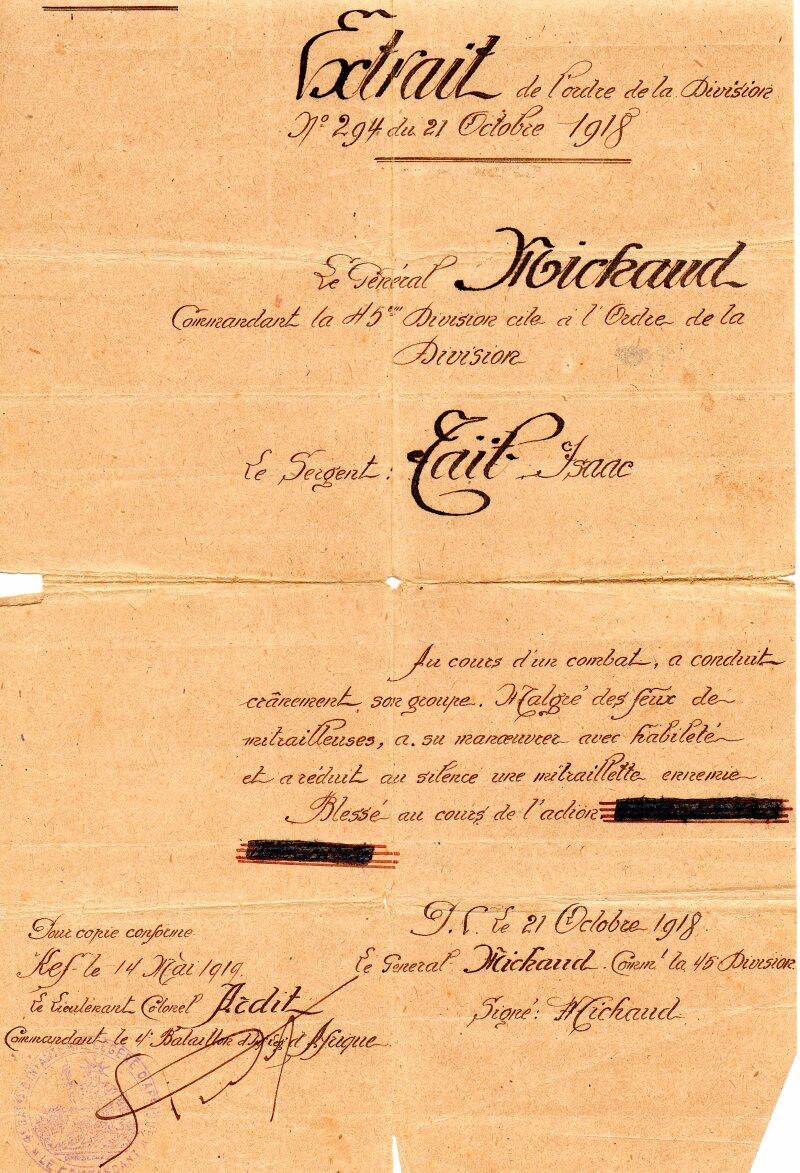 Extrait de l'ordre de la Division
N° 294 du 21 Octobre 1918
Le Général Michaud
Commandant la 45eme Division cite à l'Ordre de la
Division
Le Sergent : Taït Isaac
Au cours d'un combat, a conduit
crânement son groupe. Malgré des feux de
mitrailleuses, a su manœuvrer avec habileté
et a réduit au silence une mitraillette ennemie
Blessé au cours de l'action
P.C. le 21 Octobre 1918
Le General Michaud Commt la 45 Division
Signé: Michaud
Pour copie conforme
Kef le 14 Mai 1919
Le Lieutenant Colonel Ardit
Commandant le 4e Bataillon d'Afrique
LE COMMANDANT